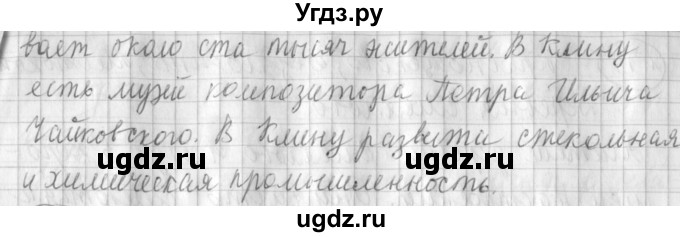 Угдз.ру
вает около ста тысяч жителей. В Клину
есть музей композитора Петра Ильича
Чайковского. В Клину развита стекольная
ugdz.ru ugdz.ru
и химическая промышленность.
ugdz.ru